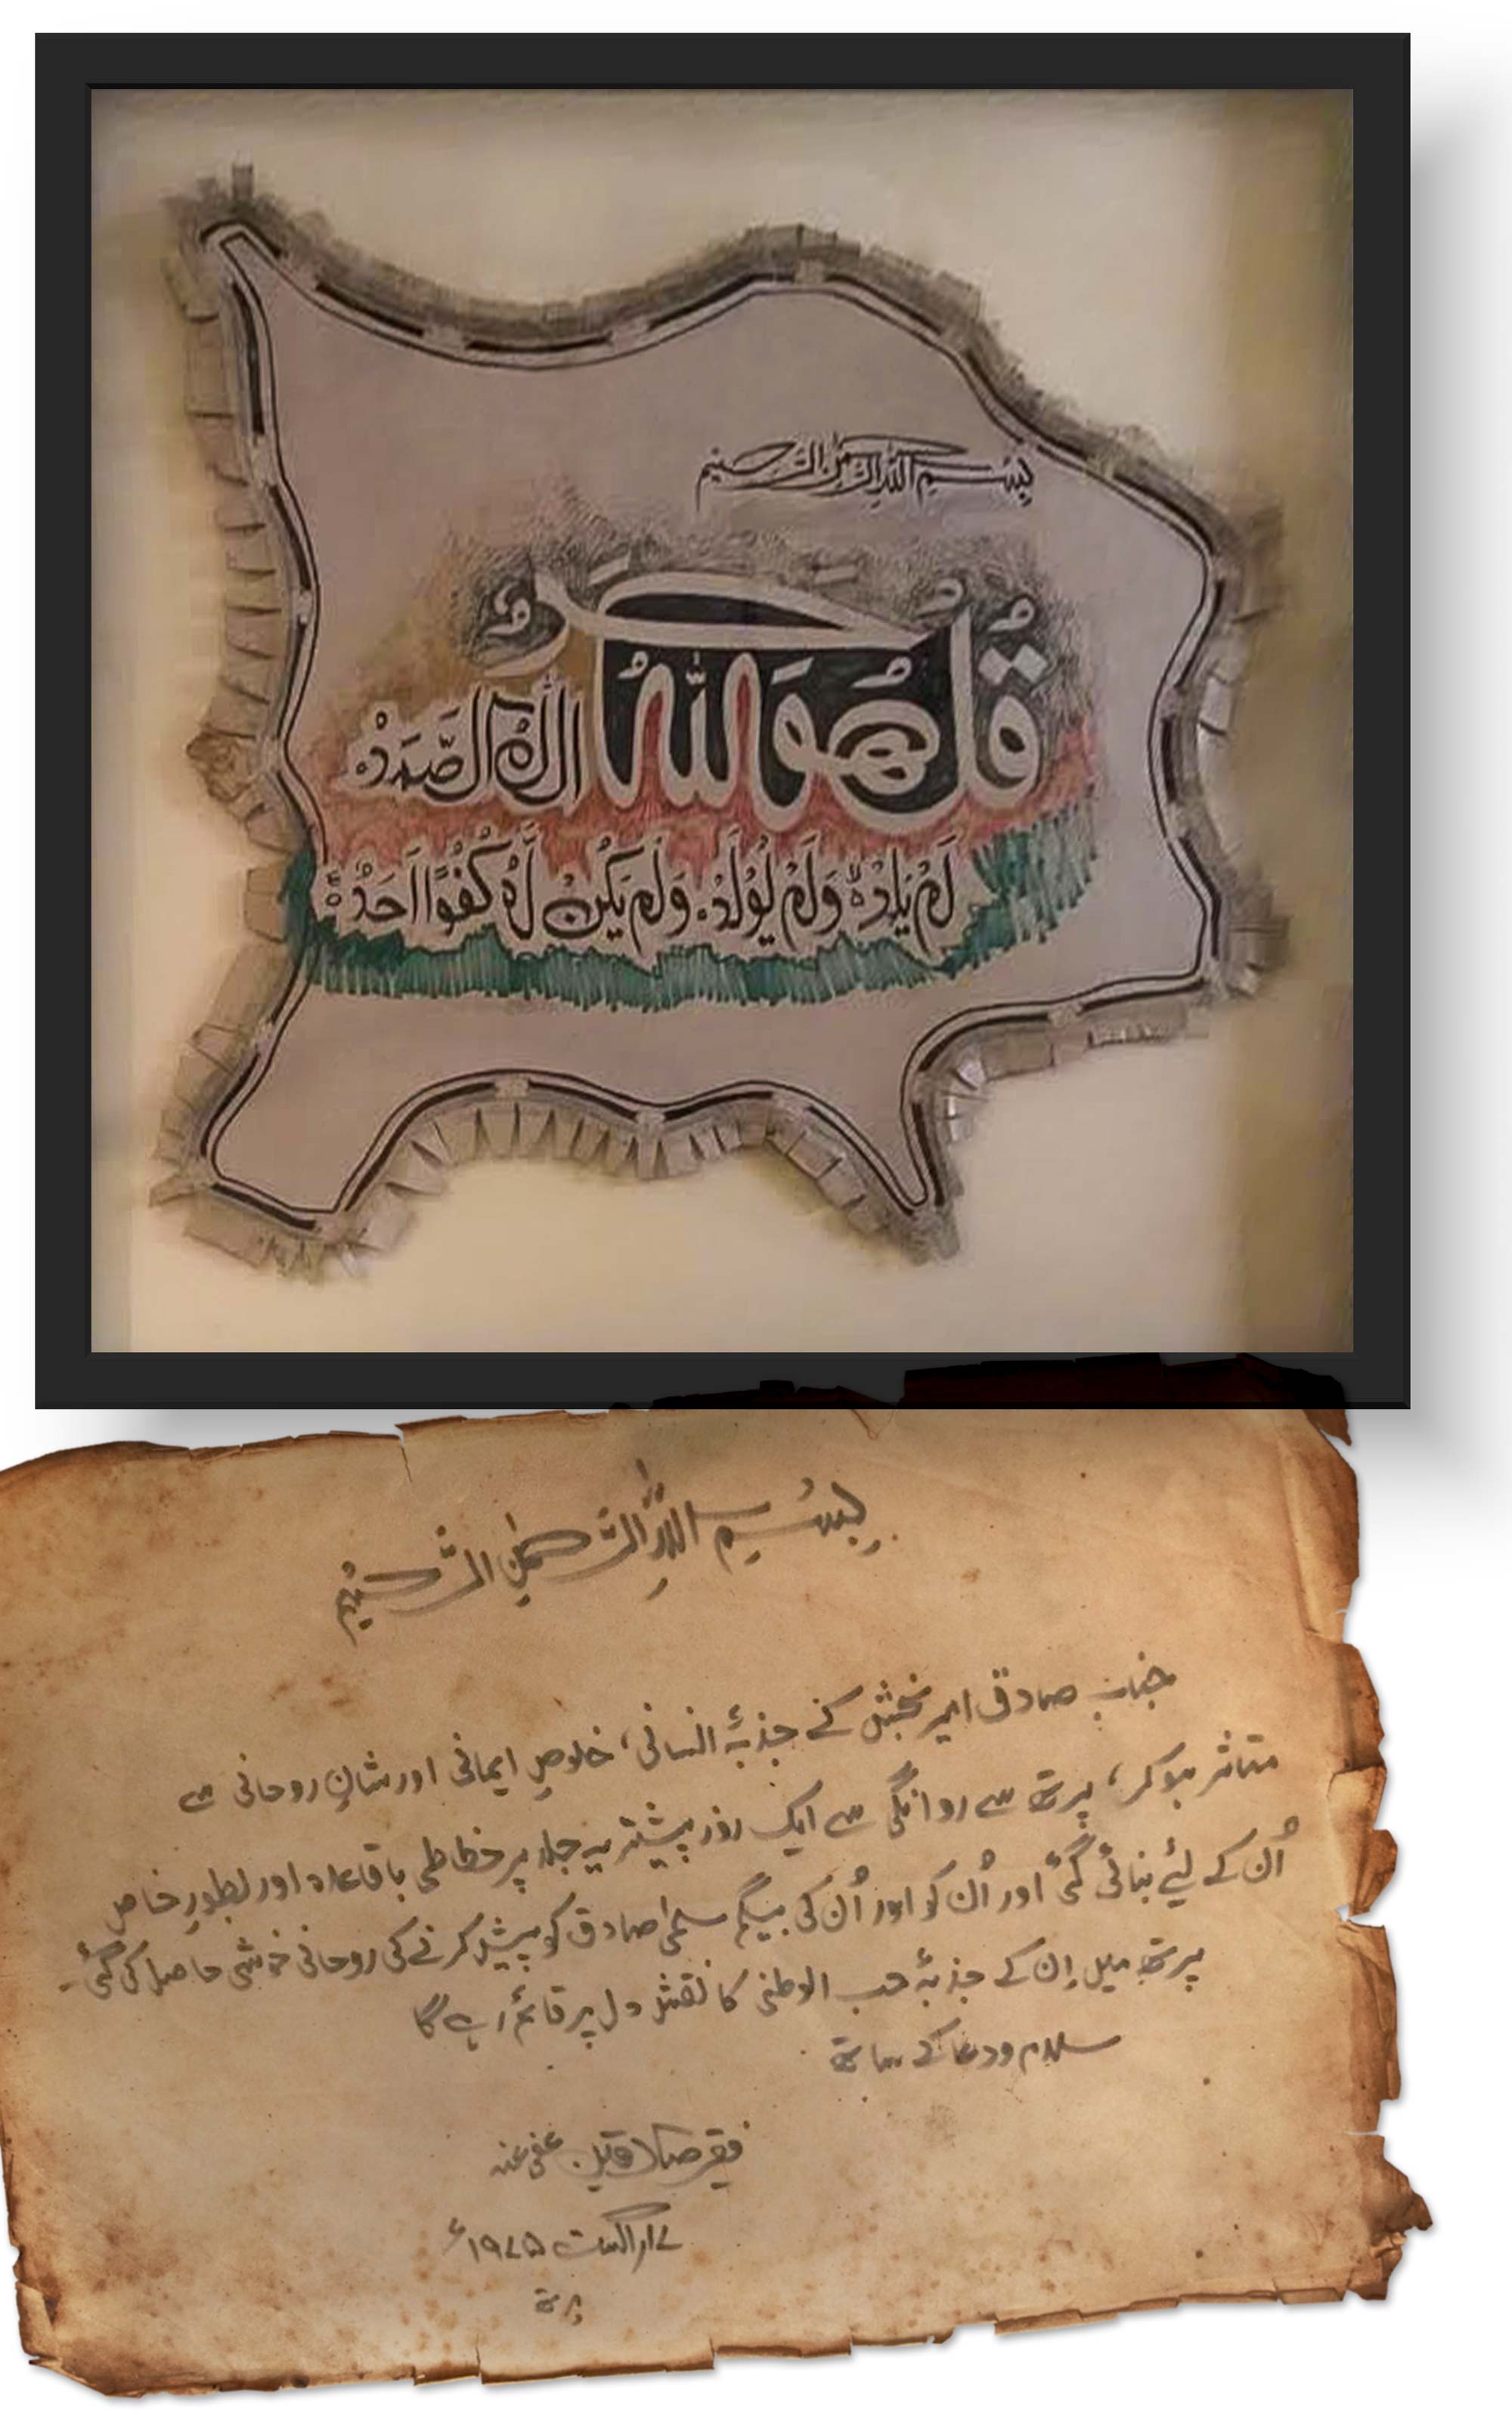 بِسْمِ اللهِ الرَّحْمٰنِ الرَّحِيْمِ
قُلْ هُوَ اللّٰهُ اَحَدٌ اَللّٰهُ الصَّمَدُ
لَمْ يَلِدْ وَلَمْ يُوْلَدْ وَلَمْ يَكُنْ لَّهٗ كُفُوًا اَحَدٌ
بِسْمِ اللّٰهِ الرَّحْمٰنِ الرَّحِيْمِ
جناب صادق امیر بخش کے جذبۂ انسانی، خلوصِ ایمانی اور شانِ روحانی سے
متاثر ہو کر، پرتھ سے روانگی سے ایک روز پیشتر یہ جلد پر خطاطی باقاعدہ اور بطورِ خاص
اُن کے لئے بنائی گئی اور اُن کو اور اُن کی بیگم سلمیٰ صادق کو پیش کرنے کی روحانی خوشی حاصل کی گئی۔
پرتھ میں اِن کے جذبۂ حب الوطنی کا نقش دل پر قائم رہے گا
سلام و دعا کے ساتھ
فقیر صادقین عفی عنہ
۱۷؍اگست ۱۹۷۵ء
پرتھ